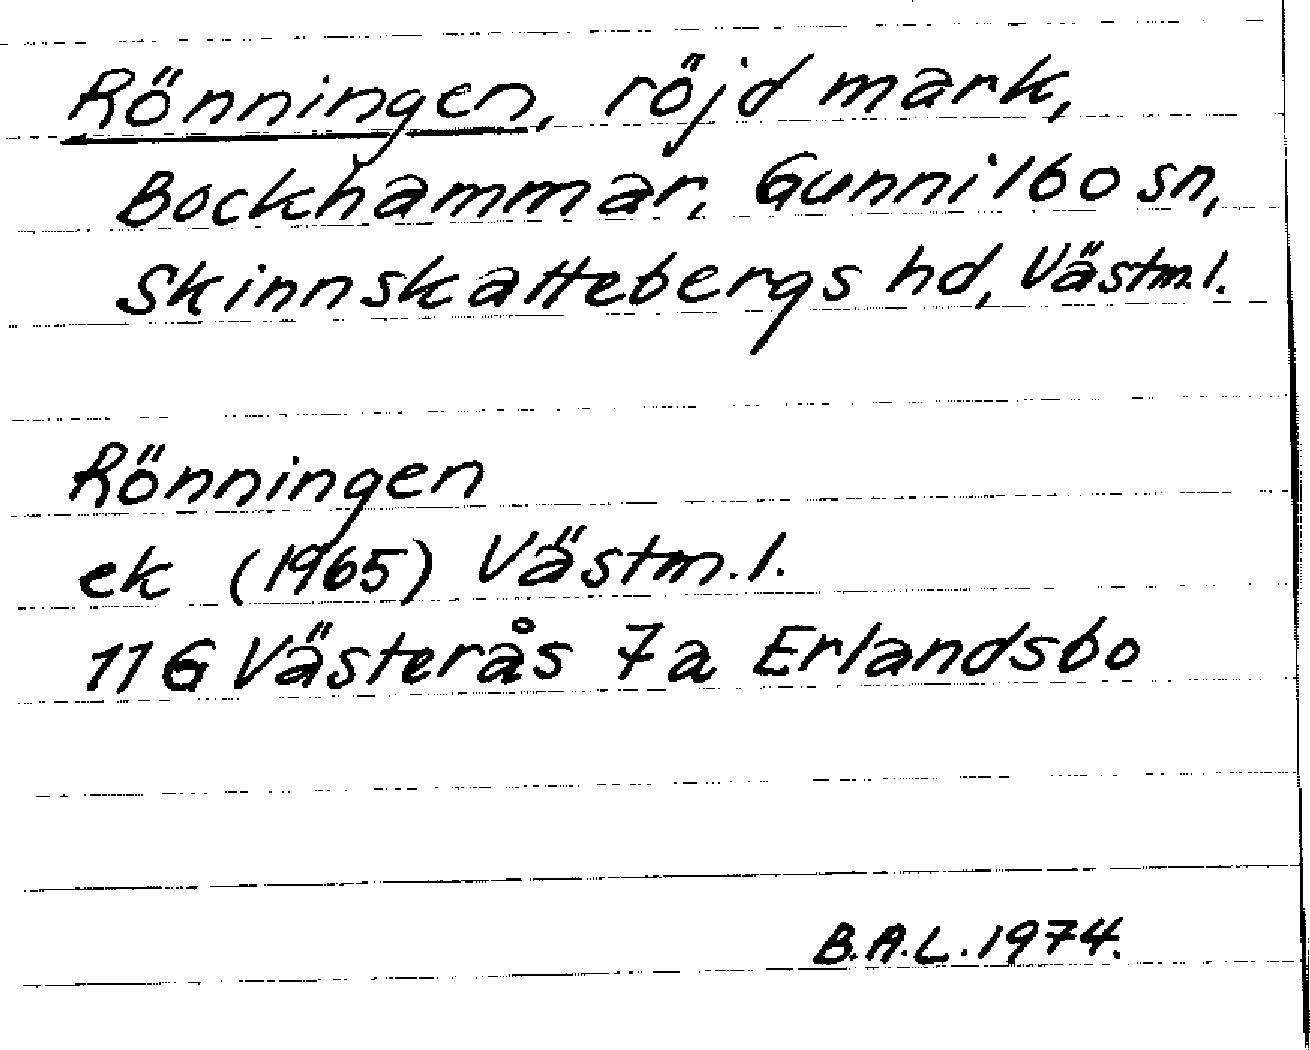 Rönningen, röjd mark,
Bockhammar, Gunnilbo sn,
Skinnskattebergs hd, Västm.l.
Rönningen
ek (1965) Västm.l.
11G Västerås 7a Erlandsbo
B.A.L. 1974.